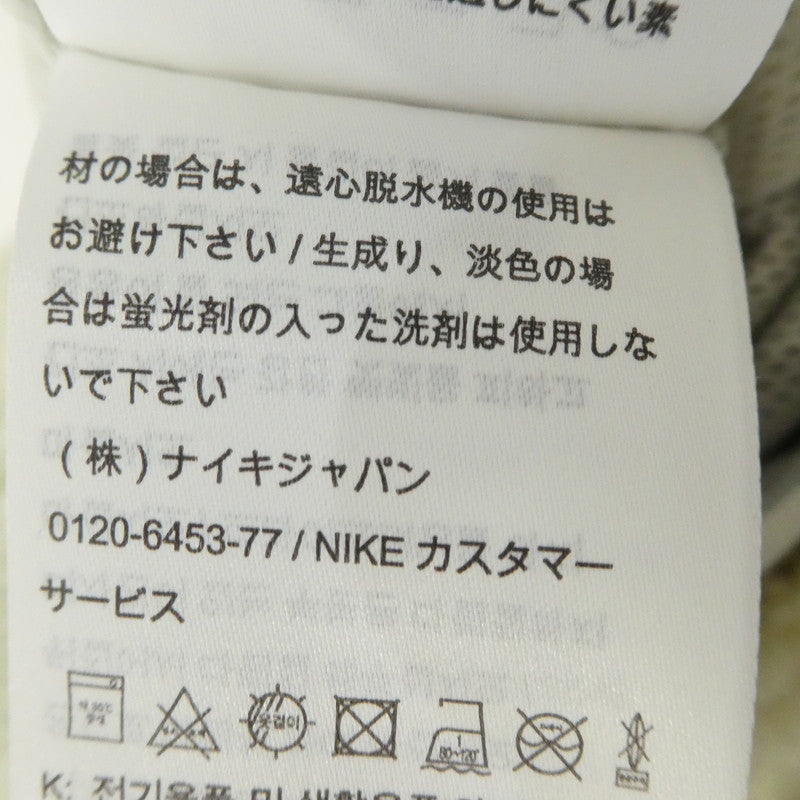 しにくい素
材の場合は、遠心脱水機の使用は
お避け下さい / 生成り、淡色の場
合は蛍光剤の入った洗剤は使用しな
いで下さい
(株)ナイキジャパン
0120-6453-77 / NIKE カスタマー
サービス
옷걸이 80~120℃
K: 전기용품 및 생활용품